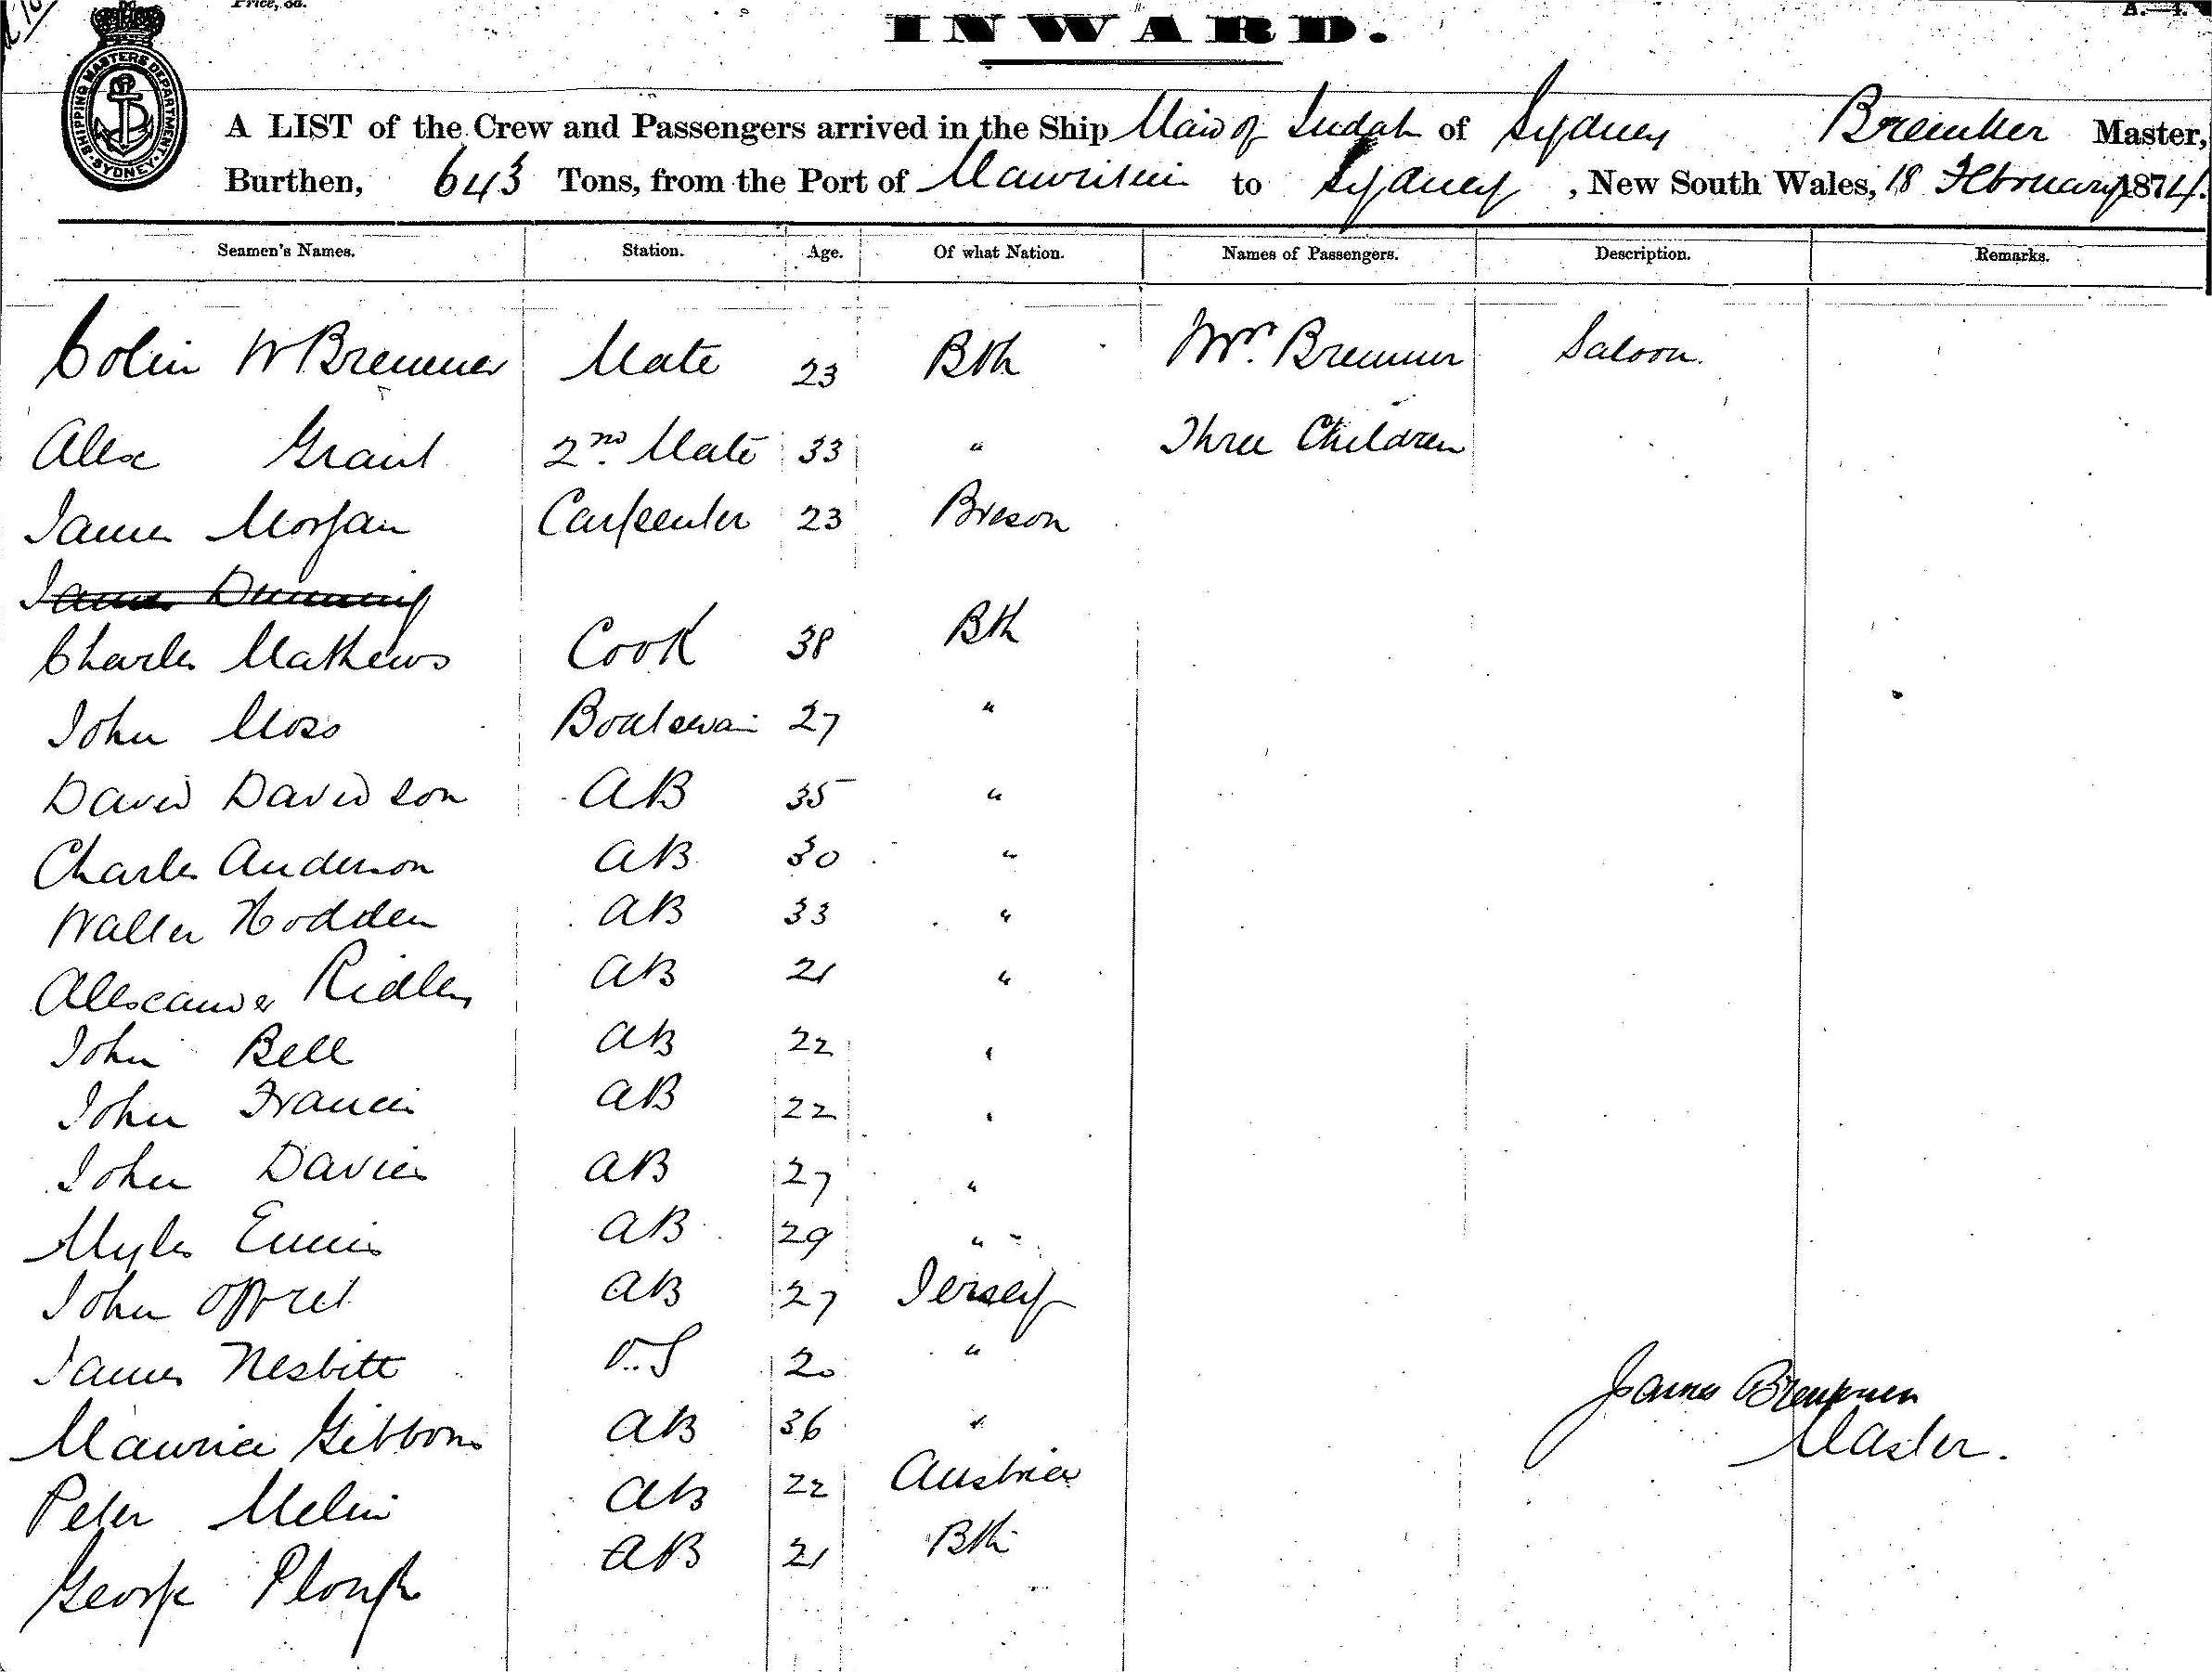 Price, 6d.
A.—4.
INWARD.
SHIPPING MASTERS DEPARTMENT SYDNEY
A LIST of the Crew and Passengers arrived in the Ship Maid of Judah of Sydney Bremner Master,
Burthen, 643 Tons, from the Port of Mauritius to Sydney, New South Wales, 18 February 1874.
Seamen's Names. Station. Age. Of what Nation. Names of Passengers. Description. Remarks.
Colin W Bremner Mate 23 Bth Mrs. Bremner Saloon.
Alex Grant 2nd Mate 33 " Three Children
James Morgan Carpenter 23 Brecon
James Dunning
Charles Mathews Cook 38 Bth
John Moss Boatswain 27 "
David Davidson AB 35 "
Charles Anderson AB 30 "
Walter Hodden AB 33 "
Alexander Ridley AB 21 "
John Bell AB 22 "
John Francis AB 22 "
John Davies AB 27 "
Myles Ennis AB 29 "
John AB 27 Jersey
James Nesbitt O.S 20 "
Maurice Gibbons AB 36 "
Peter Melin AB 22 Austria
George Plough AB 21 Bth
James Bremner
Master.